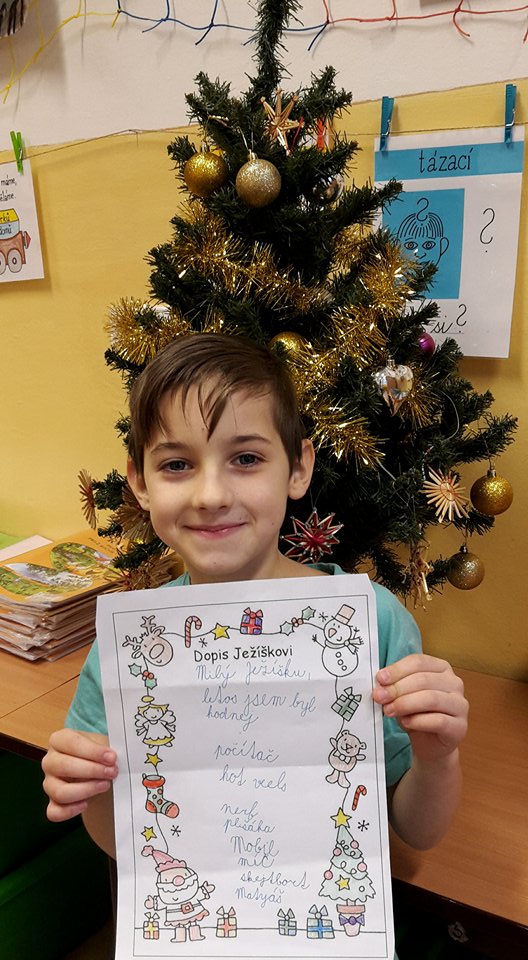 tázací
?
?
si?
máme,
Dopis Ježíškovi
Milý Ježíšku,
letos jsem byl
hodnej
počítač
hot veels
nerf
plyšáka
Mobil
míč
skejtbort
Matyáš